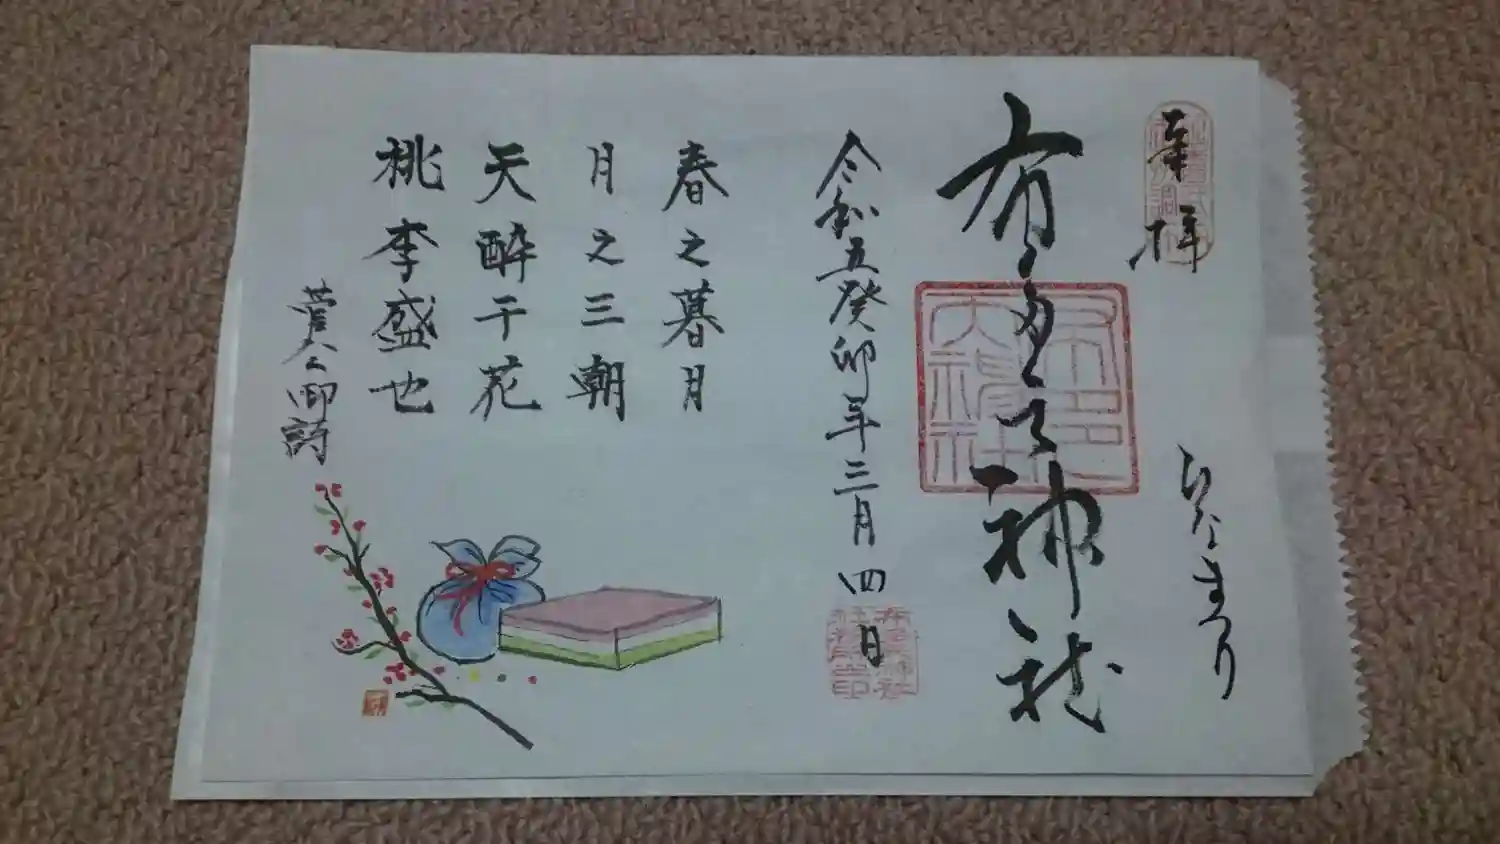 奉拝
ひなまつり
布多天神社
令和五癸卯年三月四日
春之暮月
月之三朝
天酔于花
桃李盛也
菅公御詩